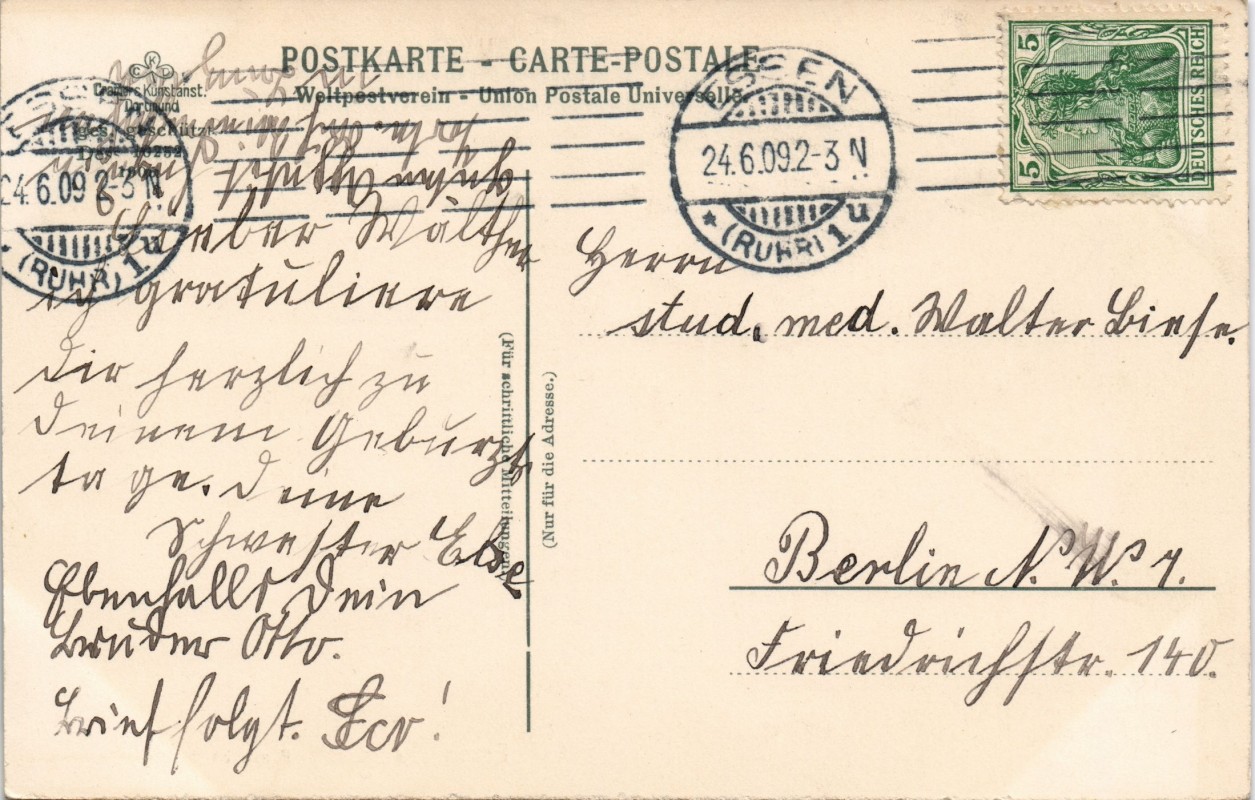 POSTKARTE - CARTE-POSTALE
Weltpostverein - Union Postale Universelle
Cramers Kunstanst.
Dortmund
ges. geschützt
ESSEN
24.6.09 2-3 N
* (RUHR) 1u
ESSEN
24.6.09.2-3 N
* (RUHR) 1u
5
5
DEUTSCHES REICH
Lieber Walther
ich gratuliere
dir herzlich zu
deinem Geburts
tage. Deine
Schwester Else
Ebenfalls Dein
Bruder Otto.
Brief folgt.
(Für schriftliche Mitteilungen.)
(Nur für die Adresse.)
Herrn
stud. med. Walter Biese.
Berlin N.W. 7.
Friedrichstr. 140.